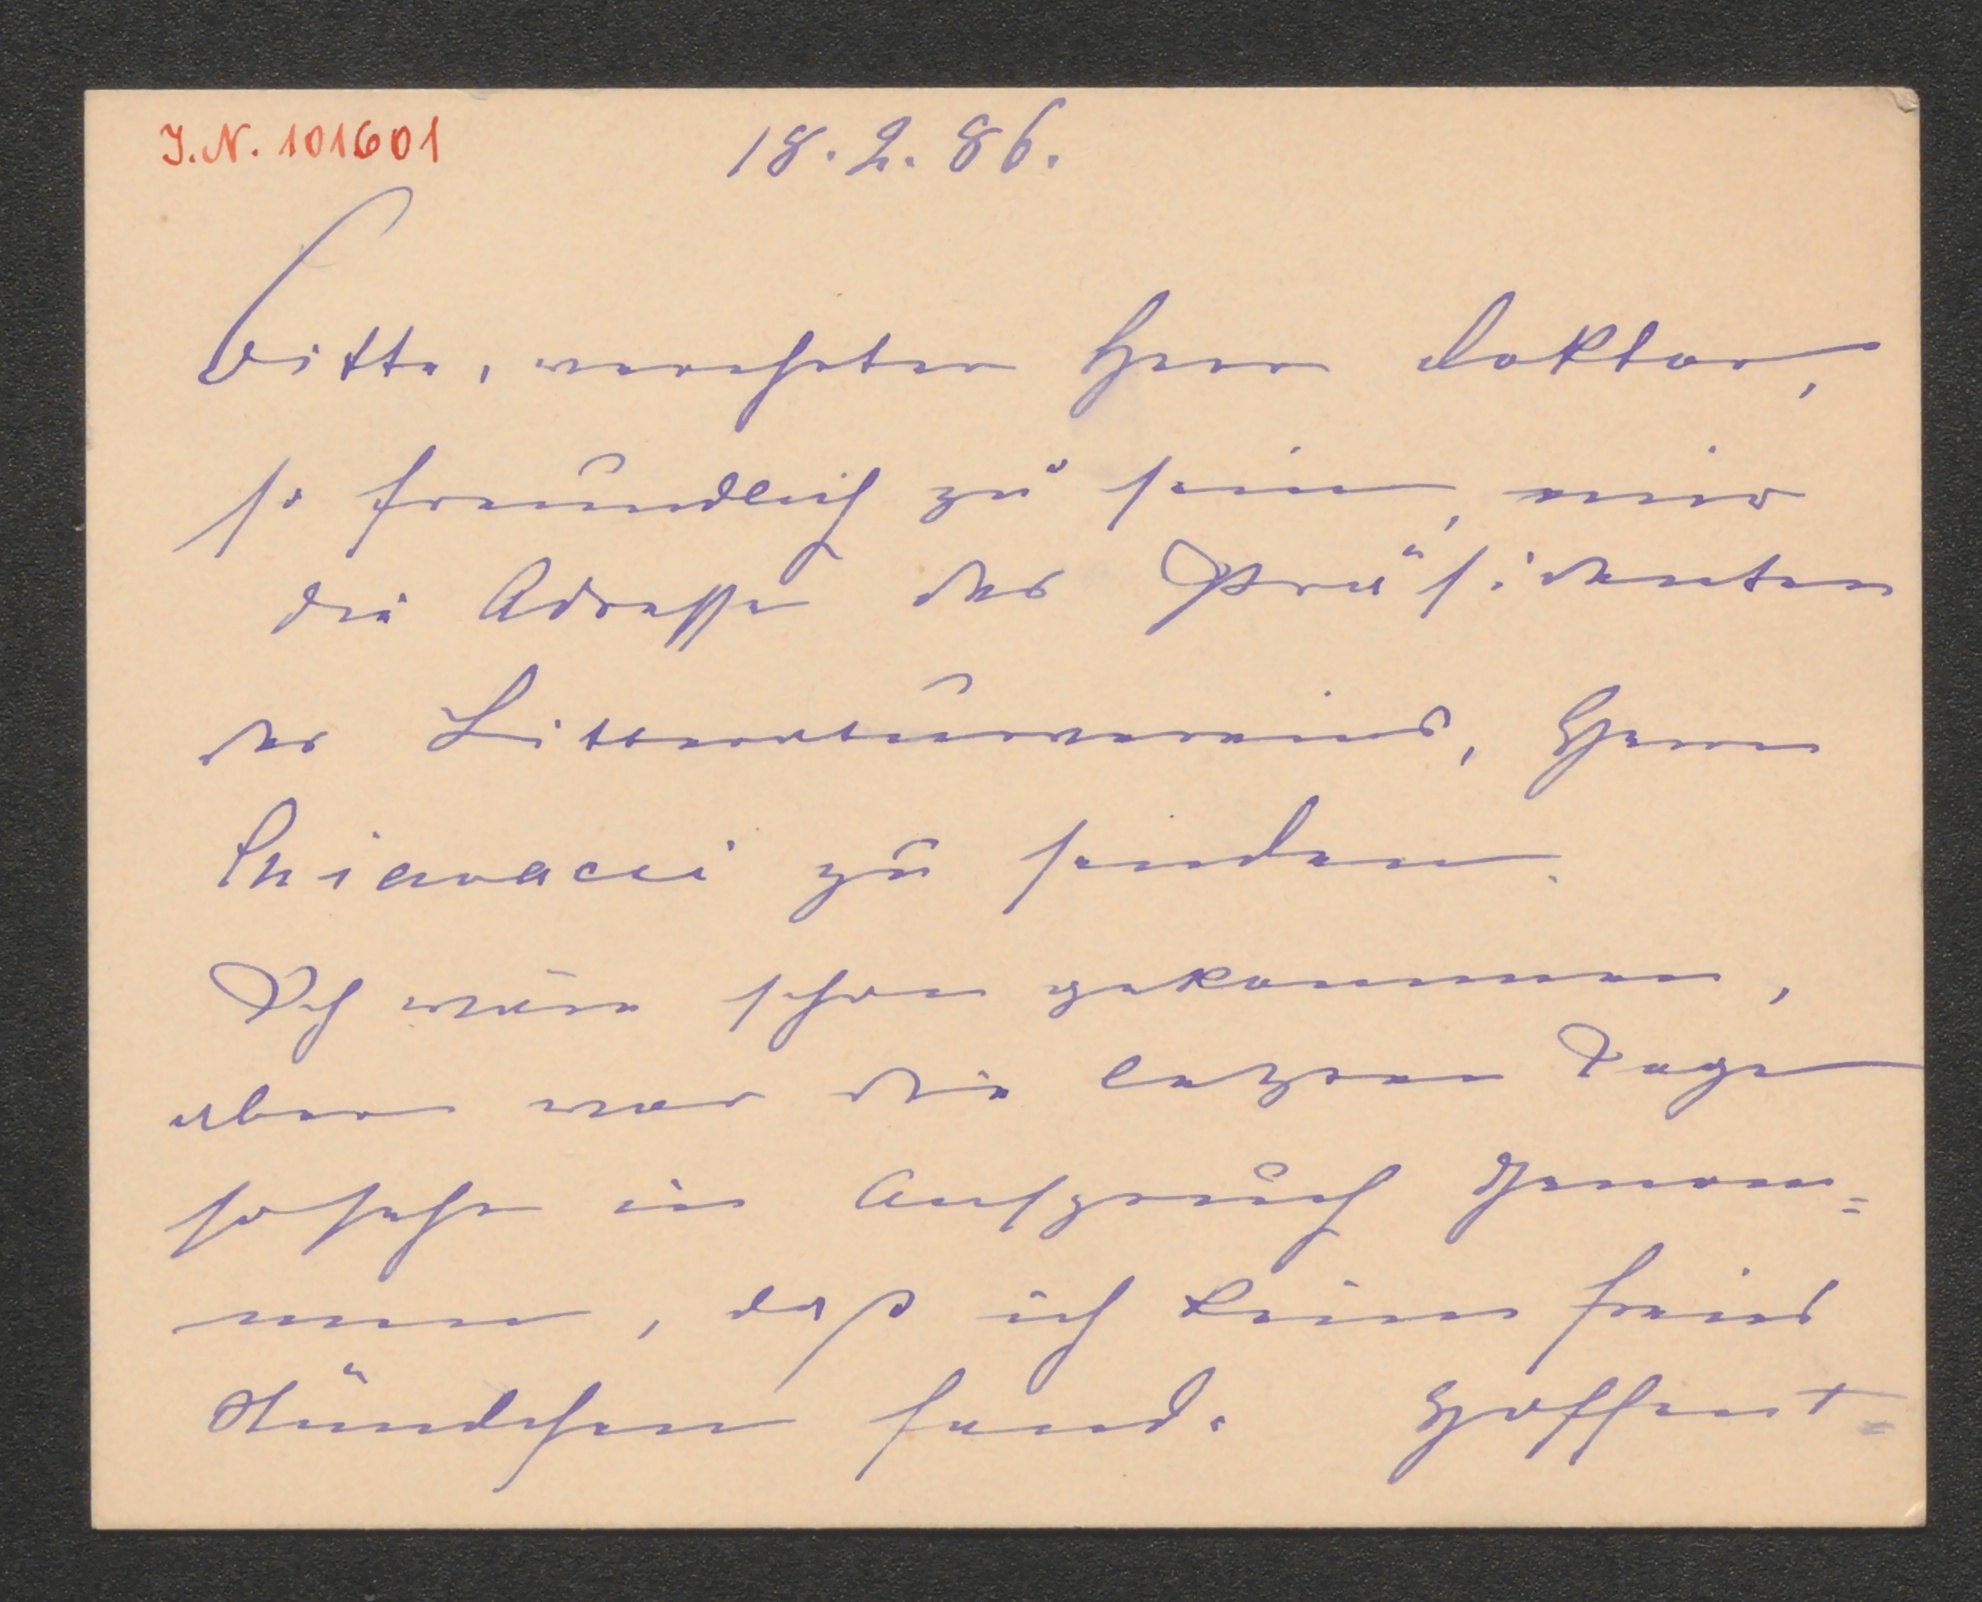 J.N. 101601
18. 2. 86.
Bitte, verehrter Herr Doktor,
so freundlich zu sein, mir
die Adresse des Präsidenten
des Litteraturvereins, Herrn
Chiavacci zu senden.
Ich wäre schon gekommen,
aber war die letzten Tage
so sehr in Anspruch genom=
men, daß ich kein freies
Stündchen fand. Hoffent=